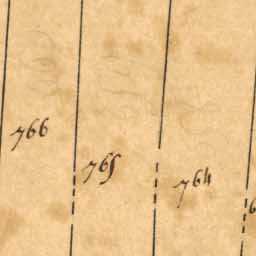 766
765
764